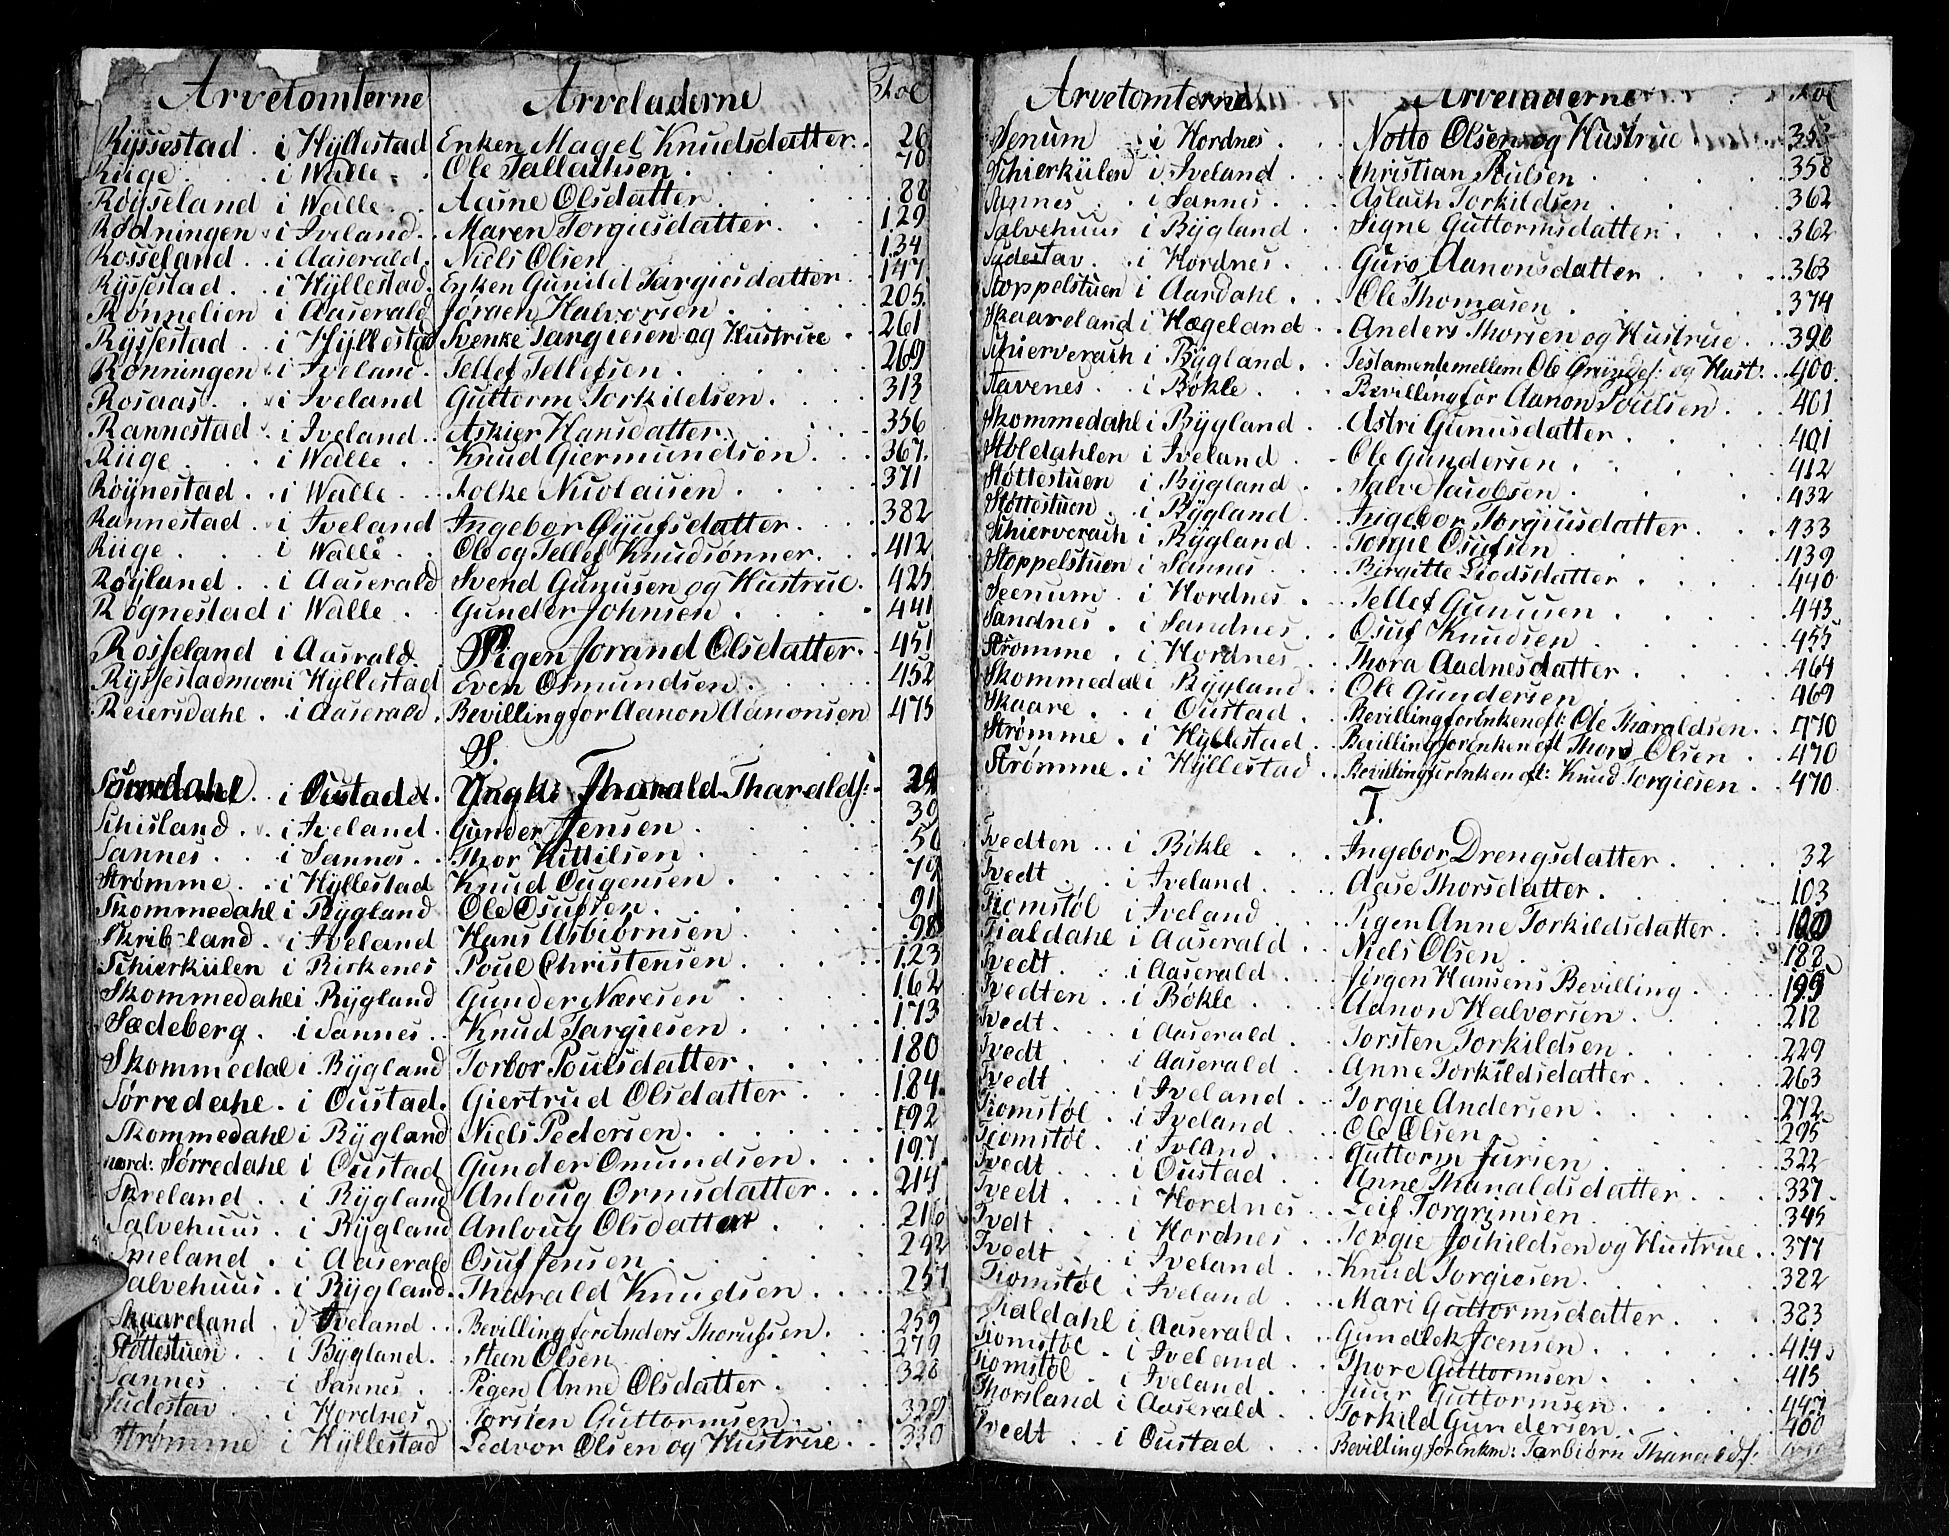 Arvetomterne Arveladerne Fol
Ryssestad . i Hyllestad Enken Magel Knudsdatter . 26
Riige . . . i Walle . Ole Tallachsen . . . 40
Røysseland i Walle . . Aasne Olsdatter . . . 88
Rødningen . i Iveland . . Maren Torgiesdatter . . 129
Rosseland . i Aaserald . Niels Olsen . . . 134
Ryssestad . . i Hyllestad . Enken Gunild Targiesdatter . 147
Rønnelien i Aaserald Jørgen Halvorsen . . . 205
Ryssestad . i Hyllestad Svenke Targiesen og Hustrue . 261
Rønningen . i Iveland . Tellef Tellefsen . . . 269
Rosaas . . i Iveland Guttorm Torkildsen . . . 313
Rannestad . i Iveland . . Askier Hansdatter . . . 356
Riige . . . i Walle . . Knud Giermundsen . . . 367
Røynestad . . i Walle . . Folke Nicolaisen . . . 371
Rannestad . i Iveland Ingebor Øyufsdatter . . . 382
Riige . . . i Walle . . Ole og Tellef Knudsønner . . 412
Røyland . . i Aaserald Svend Gunusen og Hustrue . 425
Røgnestad i Walle . . Gunder Johnsen . . . 441
Rosseland i Aaserald . Pigen Jorand Olsdatter . . 451
Ryssestadmoen i Hyllestad Even Osmundsen . . . 452
Reiersdahl . . i Aaserald . Bevilling for Aanon Aanonsen 475
S.
i Oustad . Ungk: Tharald Tharalds: .
Schisland . . i Iveland . Gunder Jensen . . . 39
Sannes . . i Sannes . . Thor Kittilsen . . . 50
Strømme . . i Hyllestad Knud Ougensen . . . 79
Skommedahl i Bygland Ole Osufsen . . . 91
Skribeland . i Iveland Hans Asbiørnsen . . . 98
Schierkülen i Birkenes Poul Christensen . . . 123
Skommedahl i Bygland Gunder Næresen . . . 162
Sædeberg . . i Sannes . . Knud Targiesen . . . 173
Skommedal i Bygland Torbor Poulsdatter . . . 180
Sørredahl . i Oustad . Giertrud Olsdatter . . . 184
Skommedahl i Bygland Niels Pedersen . . . 192
nord: Sørredahl i Oustad Gunder Omundsen . . . 197
Skreland . . i Bygland Anloug Ormsdatter . . . 214
Salvehuus . i Bygland Anloug Olsdatter . . . 216
Smeland . i Aaserald Osuf Jensen . . . 242
Salvehuus . i Bygland . Tharald Knudsen . . . 257
Skaareland i Iveland . . Bevilling for Anders Thorufsen . 259
Støttestuen . . i Bygland . . Steen Olsen . . . 279
Sannes . . i Sannes . . Pigen Anne Olsdatter . . . 328
Sudestav . . i Hordnes . Torsten Guttormsen . . . 329
Strømme i Hyllestad Ledvor Olsen og Hustrue . . 330
Arvetomterne Arveladerne Fol
Senum . i Hordnes . . Notto Olsen og Hustrue . 353
Schierkülen i Iveland . . Christian Poulsen . . . 358
Sannes . . i Sannes . . Aslach Torkildsen . . . 362
Salvehuus . i Bygland . . Signe Guttormsdatter . . . 362
Sudestav . . i Hordnes . . Guro Aanonsdatter . . . 363
Stoppelstuen i Aardahl . . Ole Thomasen . . . 374
Skaareland i Hægeland . . Anders Thorsen og Hustrue . . 390
Schierverach i Bygland . . Testamente mellem Ole og Hust: . . 400
Stavenes . . i Bøkle . . Bevilling for Aanon Poulsen . . 401
Skommedahl i Bygland . . Astri Gunusdatter . . . 401
Støledahlen i Iveland . . Ole Gundersen . . . 412
Støttestuen i Bygland . . Salve Jacobsen . . . 432
Støttestuen . i Bygland . . Ingebor Torgiusdatter . . 433
Schierverach i Bygland . . Torgie Osufsen . . . 439
Stoppelstuen i Sannes . . Birgitte Liodsdatter . . . 440
Seenum . i Hordnes . . Tellef Gunusen . . . 443
Sandnes . i Sandnes . . Osuf Knudsen . . . 455
Strømme . i Hordnes . . Thora Aadnesdatter . . . 464
Skommedal i Bygland . . Ole Gundersen . . . 469
Skaare . . i Oustad . . Bevilling for Enken eft: Ole Tharaldsen . . 470
Strømme . i Hyllestad . . Bevilling for Enken eft Thore Olsen . . 470
Strømme . i Hyllestad . . Bevilling for Enken eft: Knud Torgiesen . . 470
T.
Tvedten . . i Bøkle . . Ingebor Drengsdatter . . . 32
Tvedt . . i Iveland . . Aase Thorsdatter . . . 103
Tiomstøl i Iveland . . Pigen Anne Torkildsdatter . .
Tialdahl i Aaserald . . Niels Olsen . . . 188
Tvedt . . i Aaserald . . Jørgen Hansens Bevilling . . 195
Tvedten . . i Bøkle . . Aanon Halvorsen . . . 218
Tvedt . . i Aaserald . . Torsten Torkildsen . . . 229
Tvedt . . i Aaserald . . Anne Torkildsdatter . . . 263
Tvedt . . i Iveland . . Torgie Andersen . . . 272
Tiomstøl . i Iveland . . Ole Olsen . . . 295
Tiomstøl . i Iveland . . Guttorm Jursen . . . 322
Tvedt . . i Oustad . . Anne Tharaldsdatter . . . 337
Tvedt . . i Hordnes . . Leif Torgrimsen . . . 345
Tvedt . . i Hordnes . . Torgie Jochildsen og Hustrue . . 377
Tvedt . . i Iveland . . Knud Torgiesen . . . 382
Tiomstøl i Iveland . . Mari Guttormsdatter . . . 383
Tialdahl i Aaserald . . Gundlek Joensen . . . 414
Tiomstøl . i Iveland . . Thore Guttormsen . . . 415
Tiomstøl . i Iveland . . Juur Guttormsen . . . 447
Thorsland i Aaserald . . Torkild Gundersen . . . 460
Tvedt . . i Oustad . . Bevilling for Enkm: Tarbiørn Tharalds: